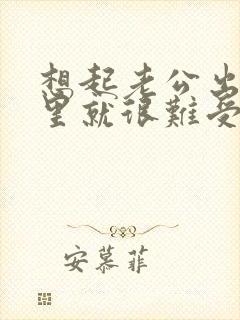 想起老公出
里就很难受
安慕菲